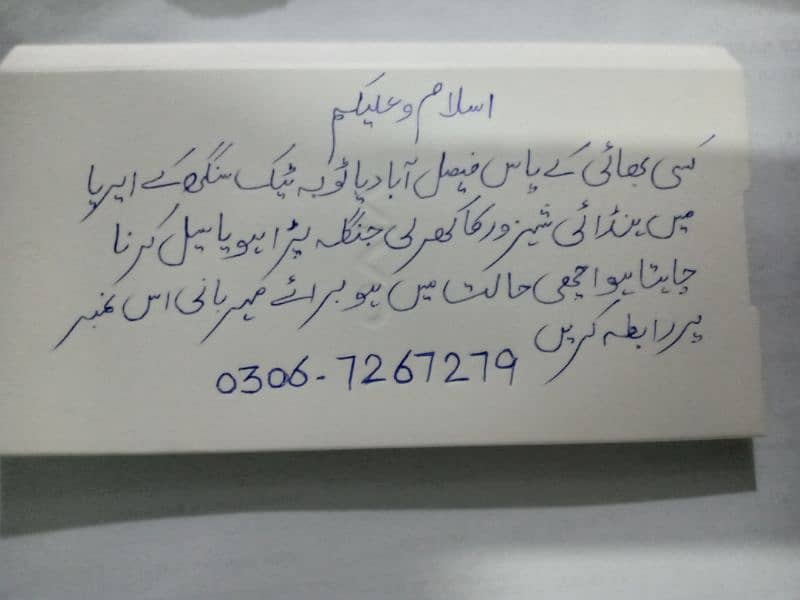 اسلام و علیکم
کسی بھائی کے پاس فیصل آباد یا ٹوبہ ٹیک سنگھ کے ایریا
میں ہنڈائی شہزور کا کھرلی جنگلہ پڑا ہو یا سیل کرنا
چاہتا ہو اچھی حالت میں ہو برائے مہربانی اس نمبر
پر رابطہ کریں
0306-7267279